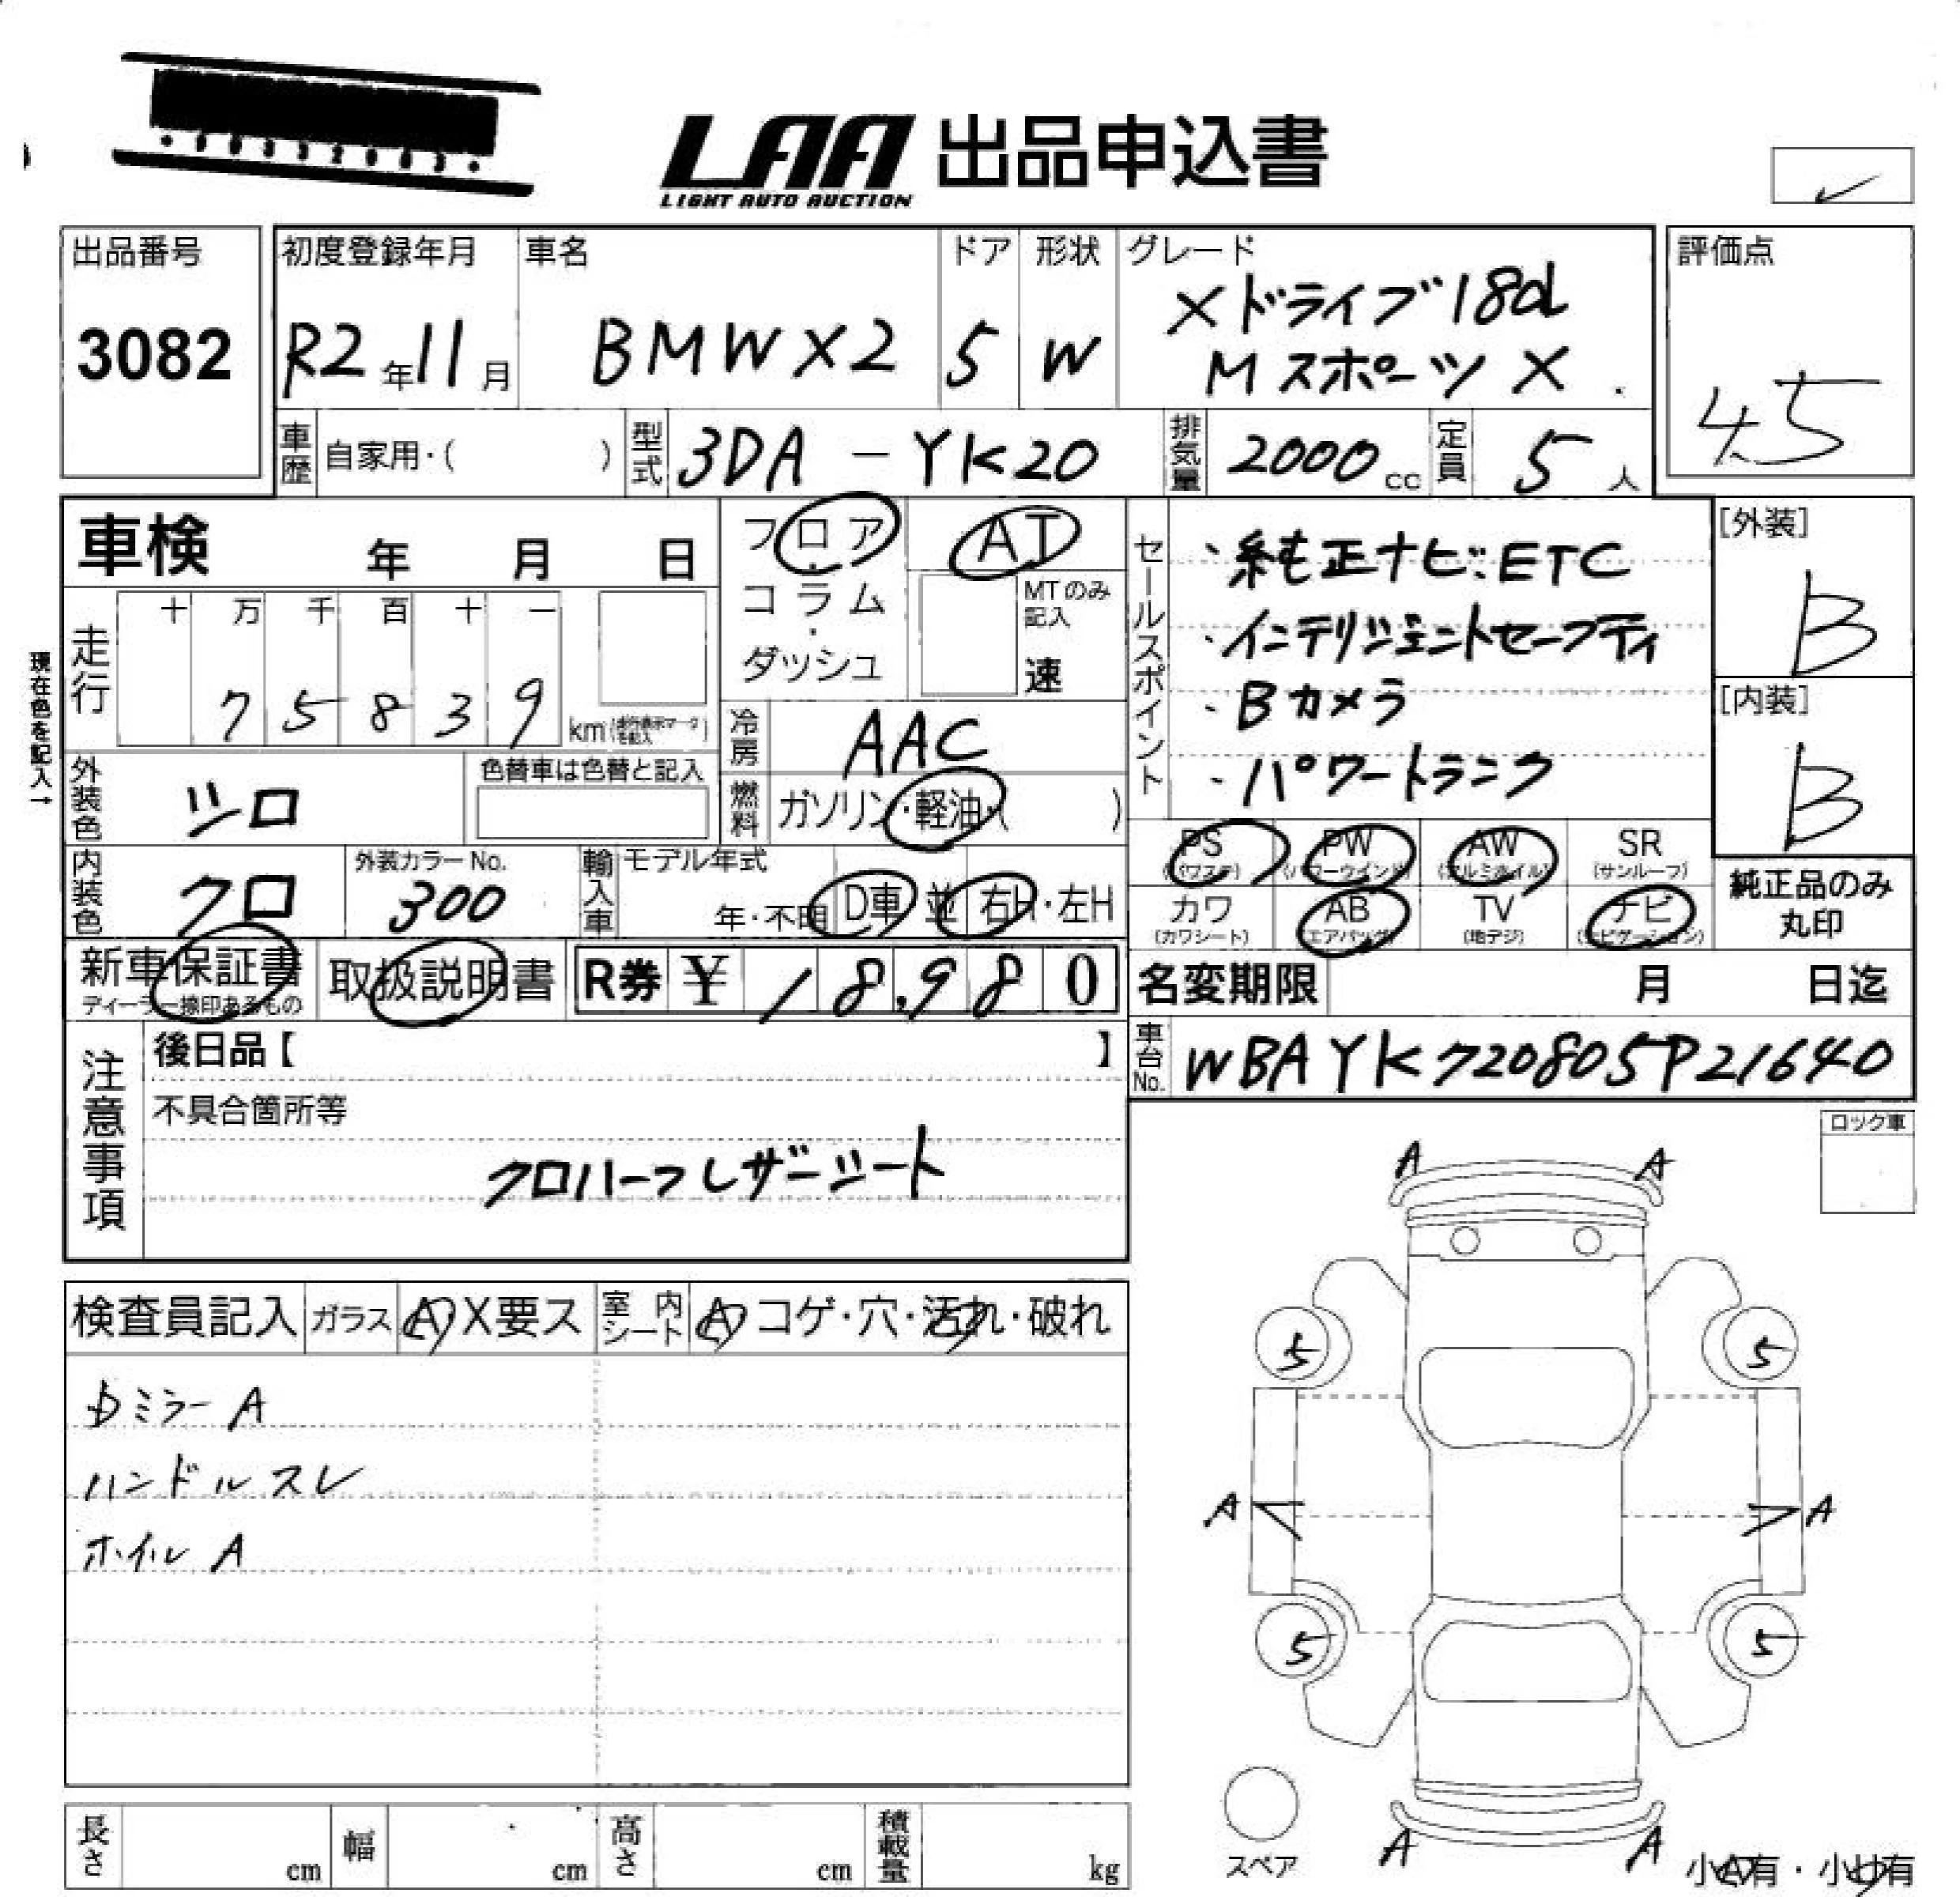 LAA 出品申込書
LIGHT AUTO AUCTION
出品番号
3082
初度登録年月
R2年11月
車名
BMW X2
ドア
5
形状
W
グレード
Xドライブ18d
MスポーツX
評価点
4.5
車歴 自家用・( )
型式 3DA-YK20
排気量 2000cc
定員 5人
車検 年 月 日
フロア・コラム・ダッシュ
AT
MTのみ記入
速
現在色を記入→
走行
十 万 千 百 十 一
7 5 8 3 9 km
冷房 AAC
燃料 ガソリン・軽油・( )
外装色 シロ
色替車は色替と記入
内装色 クロ
外装カラーNo. 300
輸入車 モデル年式
年・不明 D車 並 右H・左H
セールスポイント
・純正ナビ.ETC
・インテリジェントセーフティ
・Bカメラ
・パワートランク
[外装]
B
[内装]
B
PS (パワステ)
PW (パワーウインド)
AW (アルミホイル)
SR (サンルーフ)
カワ (カワシート)
AB (エアバッグ)
TV (地デジ)
ナビ (ナビゲーション)
純正品のみ
丸印
新車保証書
ディーラー捺印あるもの
取扱説明書
R券 ¥ 18,980
名変期限 月 日迄
車台No. WBAYK720805P21640
注意事項
後日品【 】
不具合箇所等
クロハーフレザーシート
ロック車
検査員記入 ガラス A X要ス 室内シート A コゲ・穴・汚れ・破れ
ミラーA
ハンドルスレ
ホイルA
A A
5 5
A A
5 5
スペア
A A
小A有・小U有
長さ cm
幅 cm
高さ cm
積載量 kg